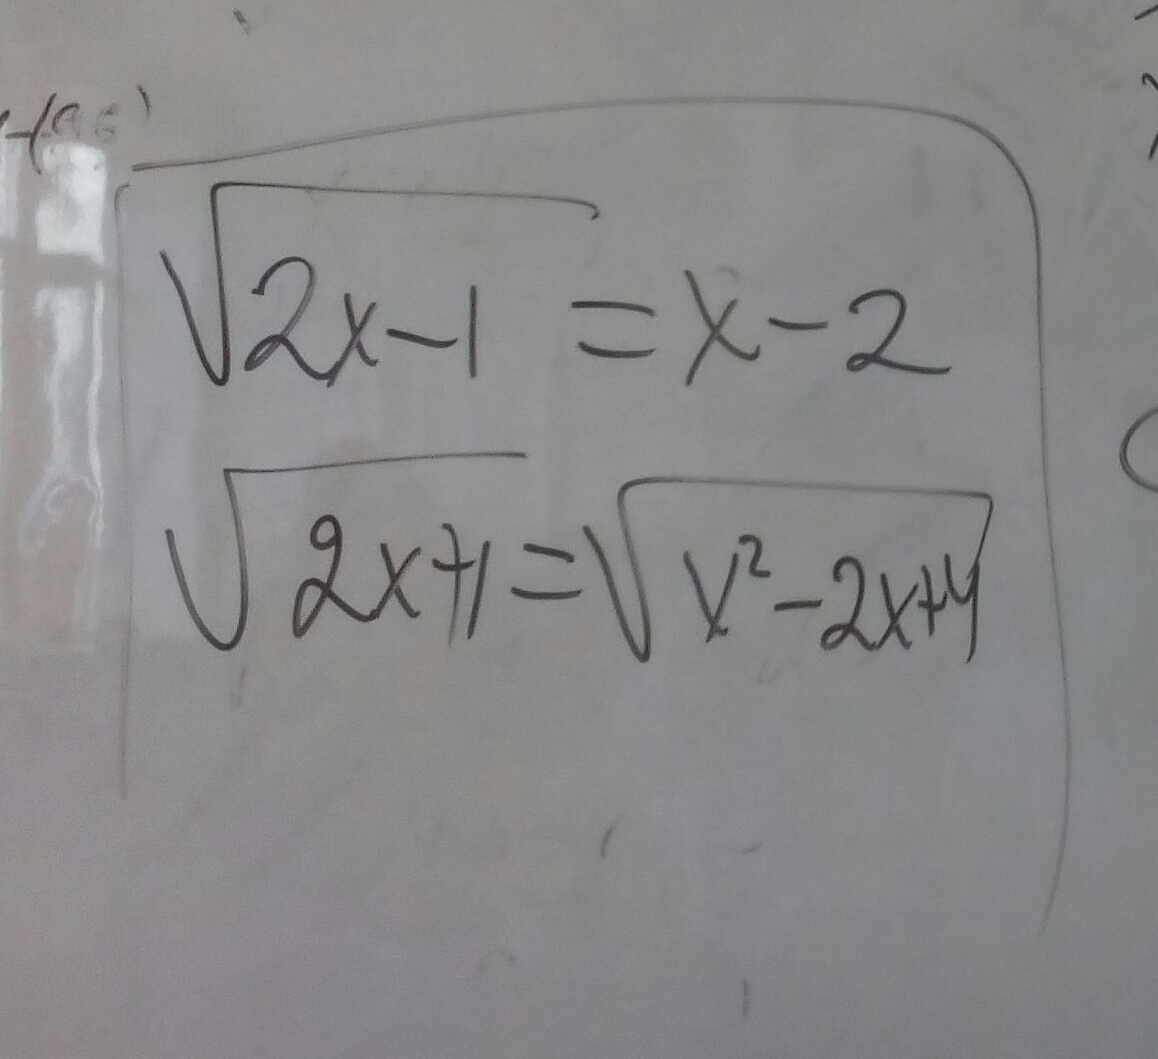 √2x-1 = x-2
√2x+1 = √x²-2x+4